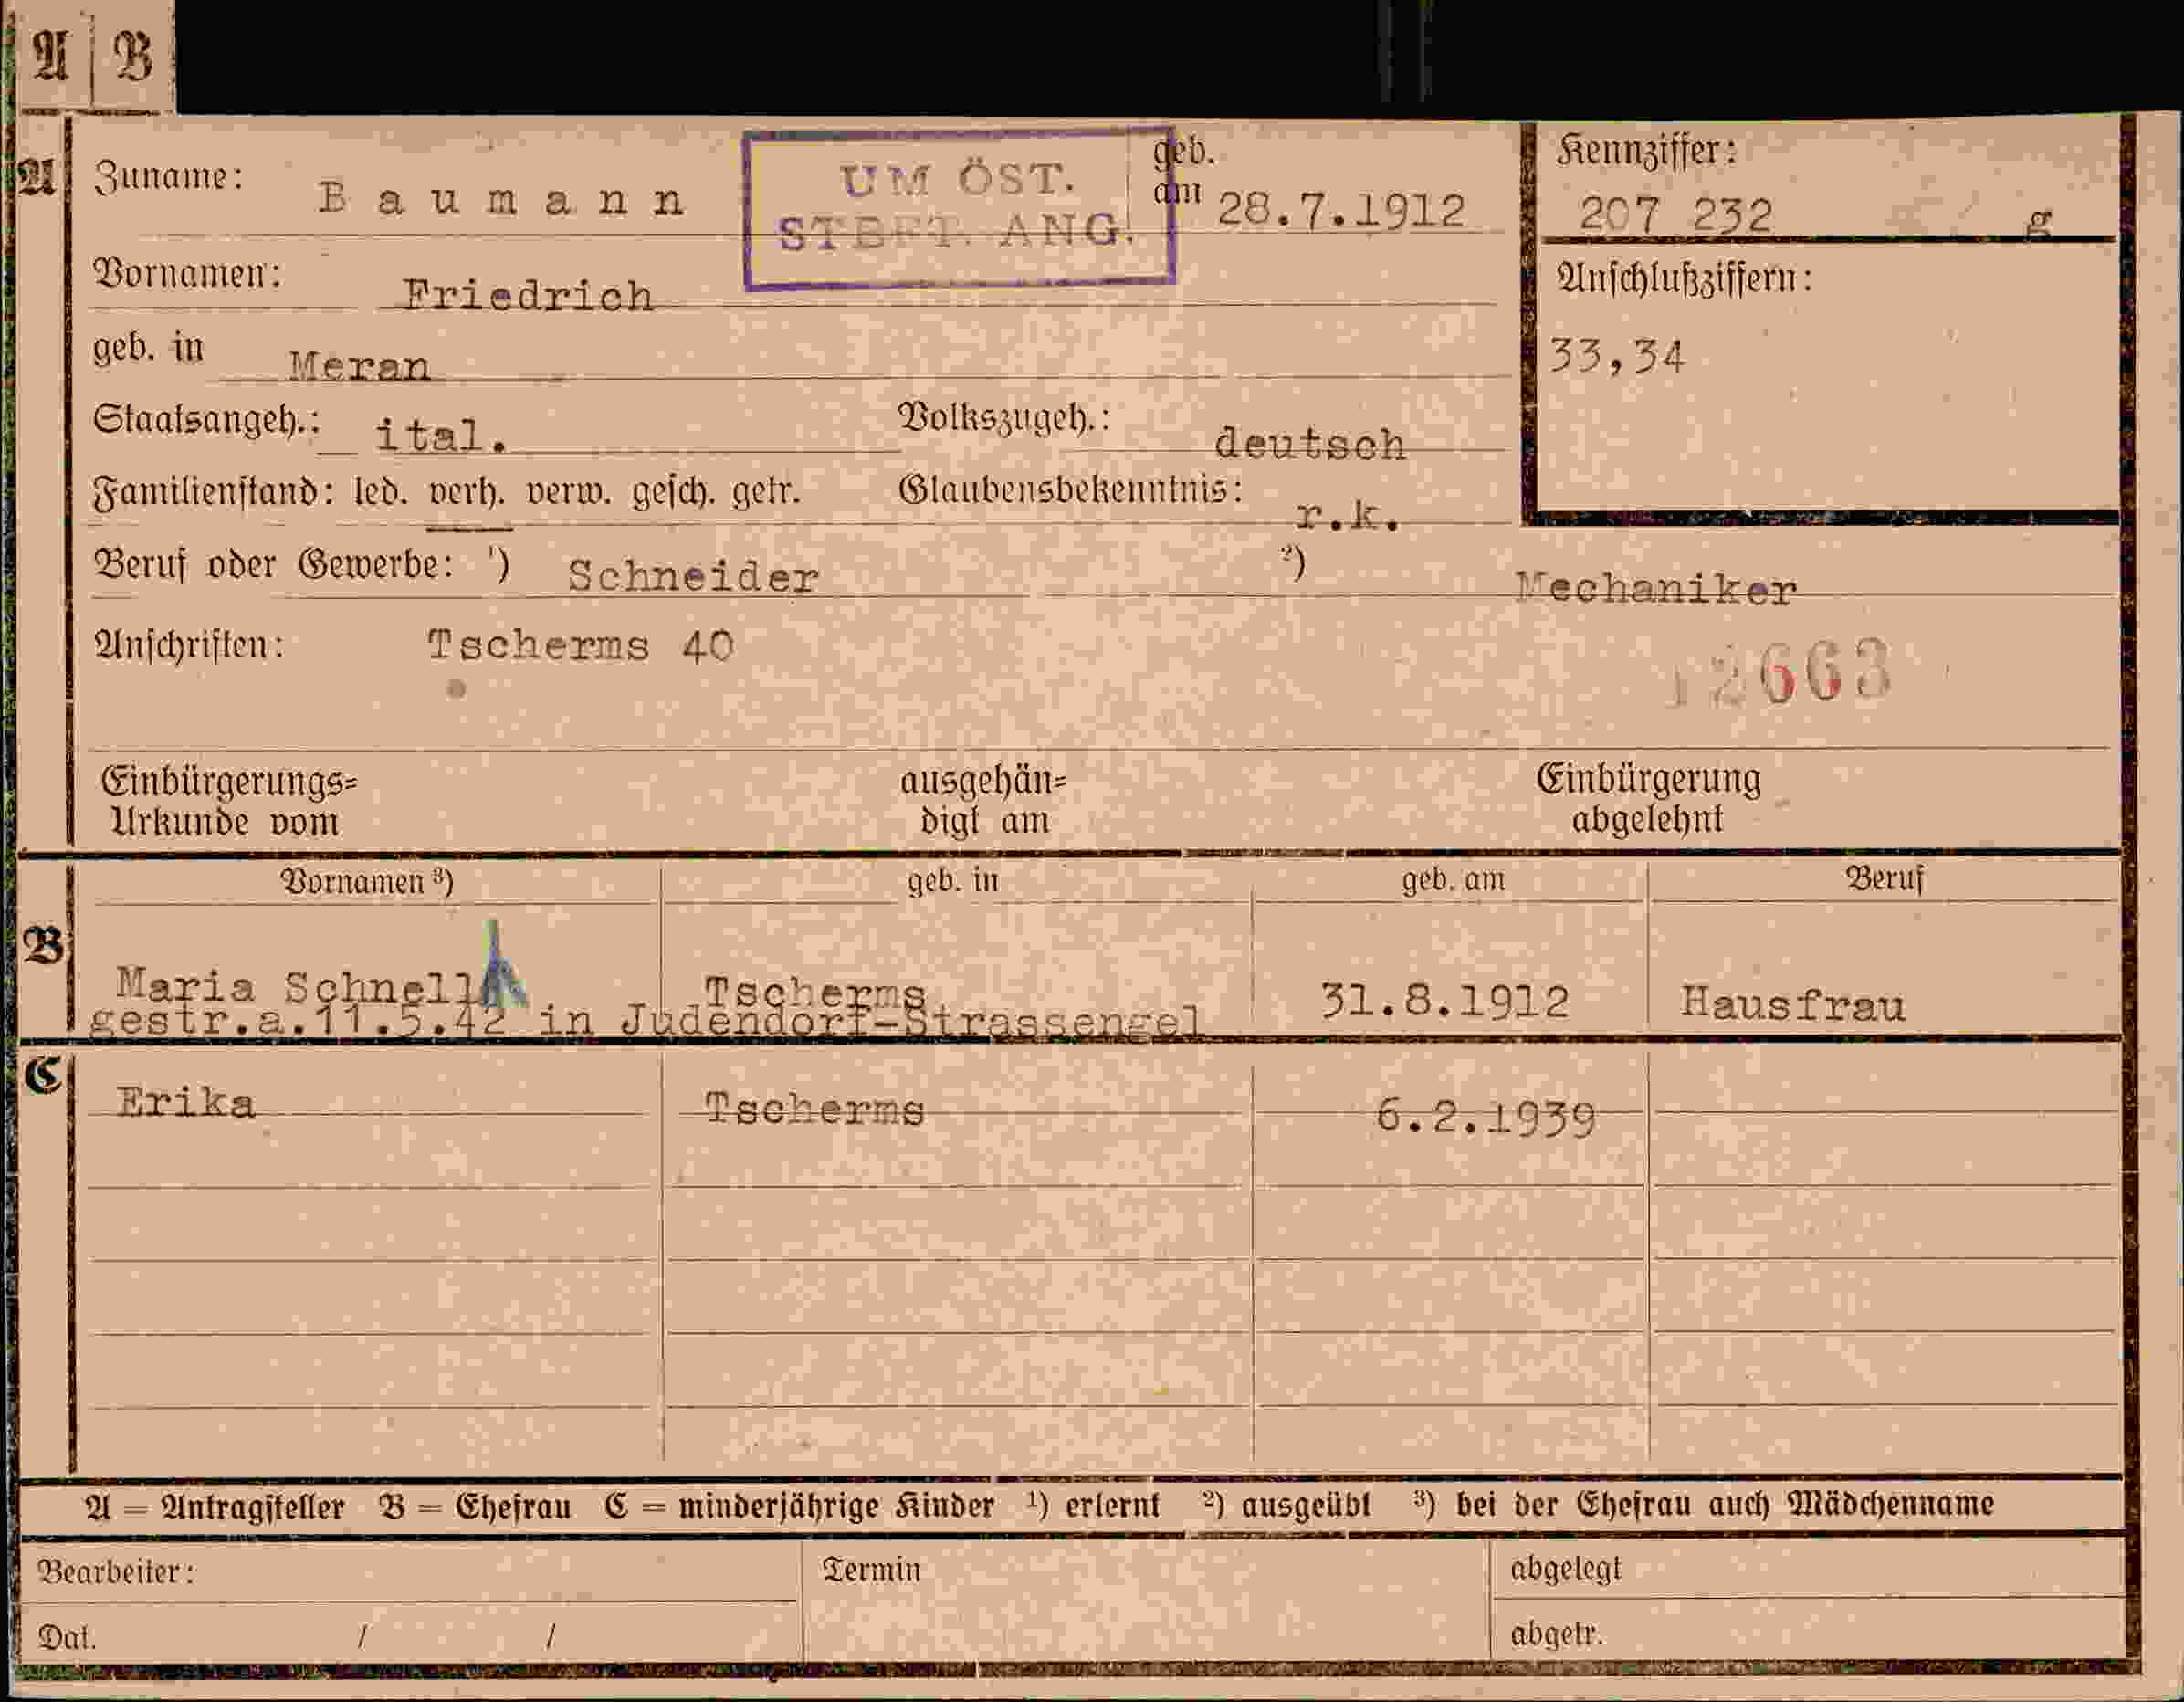 A B
A Zuname: Baumann geb. am 28.7.1912 Kennziffer:
UM ÖST.
STBFT. ANG.
207 232 g
Vornamen: Friedrich Anschlußziffern:
geb. in Meran 33,34
Staatsangeh.: ital. Volkszugeh.: deutsch
Familienstand: led. verh. verw. gesch. getr. Glaubensbekenntnis: r.k.
Beruf oder Gewerbe: ¹) Schneider ²) Mechaniker
Anschriften: Tscherms 40
12663
Einbürgerungs= ausgehän= Einbürgerung
Urkunde vom digt am abgelehnt
Vornamen ³) geb. in geb. am Beruf
B
Maria Schnell Tscherms 31.8.1912 Hausfrau
gestr.a.11.5.42 in Judendorf-Strassengel
C
Erika Tscherms 6.2.1939
A = Antragsteller B = Ehefrau C = minderjährige Kinder ¹) erlernt ²) ausgeübt ³) bei der Ehefrau auch Mädchenname
Bearbeiter: Termin abgelegt
Dat. / / abgetr.